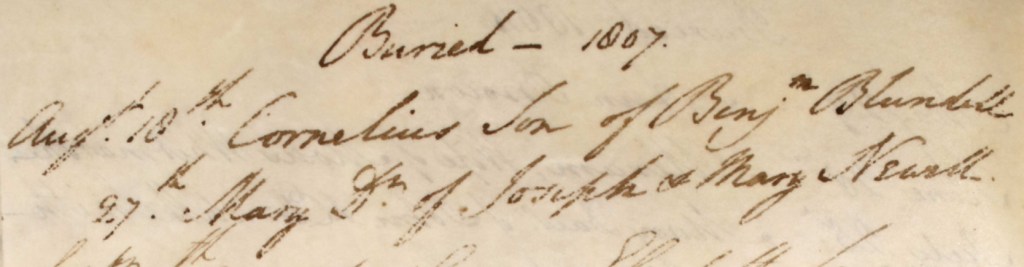 Buried – 1807.
Augt. 18th Cornelius Son of Benjm Blundell
27th. Mary Dr. of Joseph & Mary Newell.